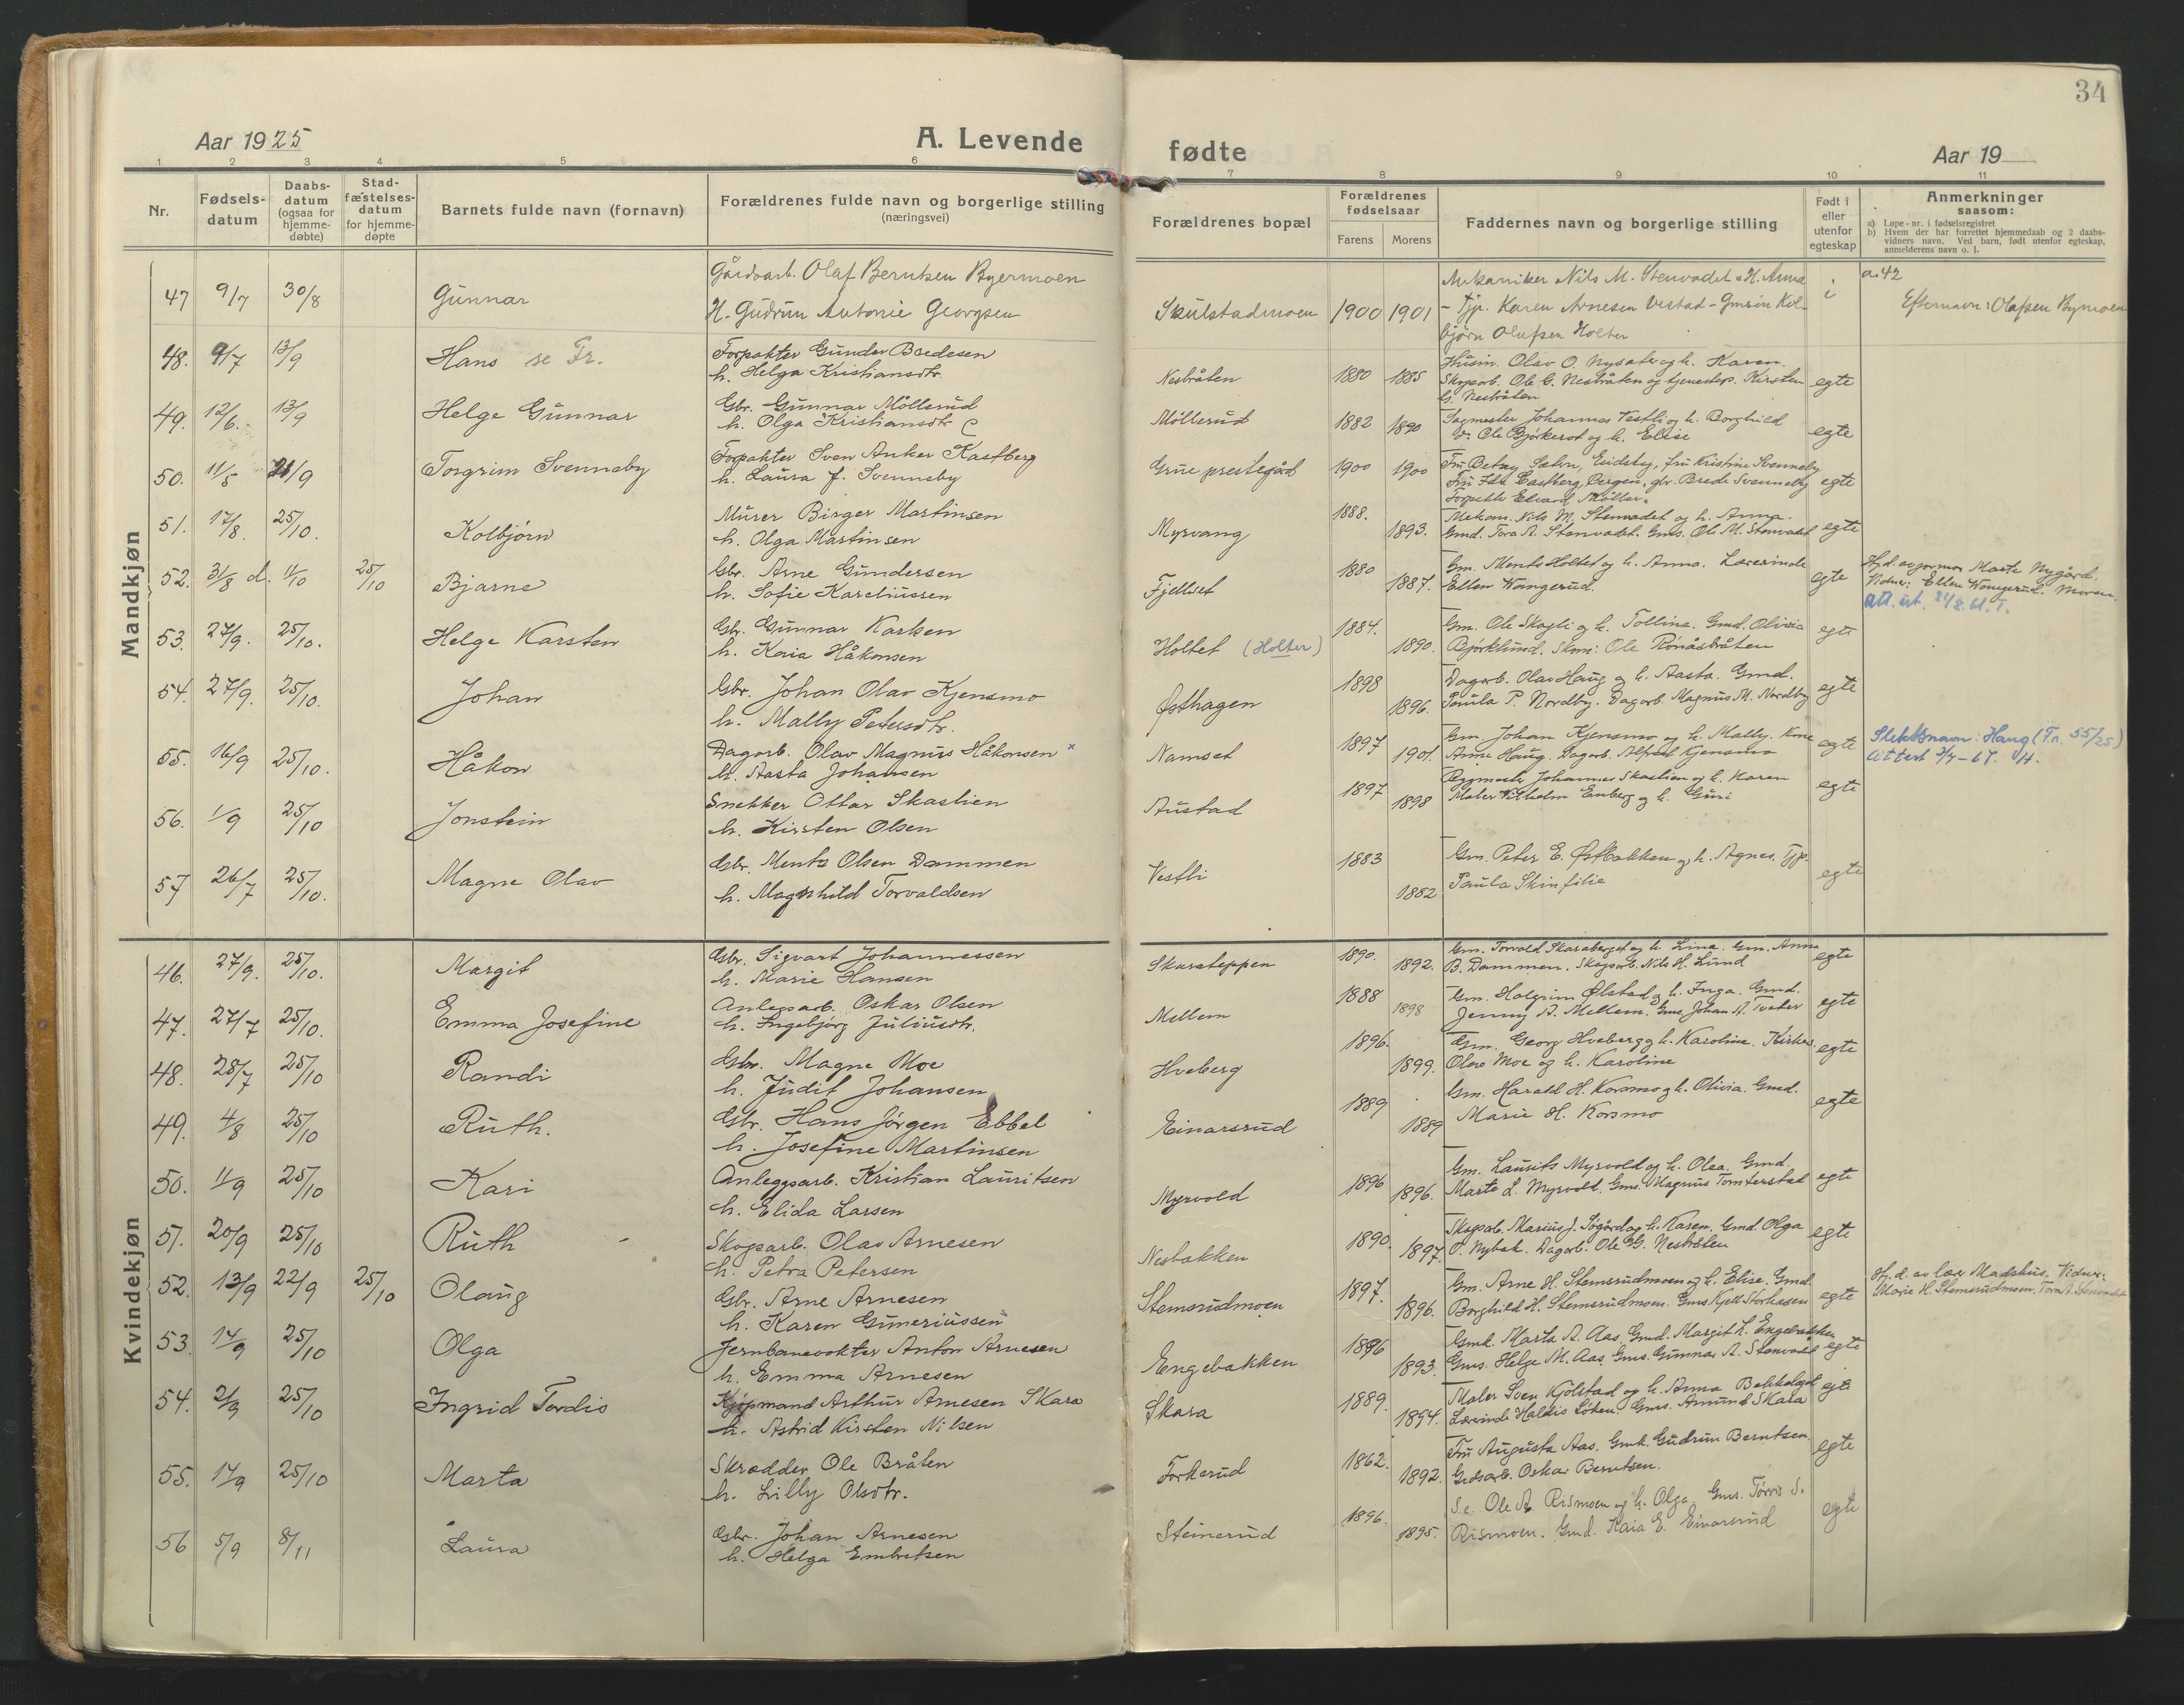 34
Aar 1925
A. Levende fødte
Aar 19
1 2 3 4 5 6 7 8 9 10 11
Nr.
Fødsels-
datum
Daabs-
datum
(ogsaa for
hjemme-
døbte)
Stad-
fæstelses-
datum
for hjemme-
døpte
Barnets fulde navn (fornavn)
Forældrenes fulde navn og borgerlige stilling
(næringsvei)
Forældrenes bopæl
Forældrenes
fødselsaar
Farens Morens
Faddernes navn og borgerlige stilling
Født i
eller
utenfor
egteskap
Anmerkninger
saasom:
a) Løpe-nr. i fødselsregistret
b) Hvem der har forrettet hjemmedaab og 2 daabs-
vidners navn. Ved barn, født utenfor egteskap,
anmelderens navn o. l.
Mandkjøn
47 9/7 30/8 Gunnar
Gårdsarb. Olaf Berntsen Byermoen
H. Gudrun Antonie Georgsen
Skulstadmoen 1900 1901
Mekaniker Nils M. Stenvadet & H. Anna
– Tjp. Karen Arnesen Vestad – Gmsøn Kol-
bjørn Olufsen Holter
i
a. 42
Efternavn: Olafsen Bymoen
48. 9/7 13/9 Hans se Fr.
Forpakter Gunder Bredesen
h. Helga Kristiansdtr.
Nesbråten 1880 1885
Husm. Olav O. Nysater og h. Karen.
Skogsarb. Ole G. Nesbråten og tjenestep. Kirsten
G. Nesbråten
egte
49. 12/6. 13/9 Helge Gunnar
Gbr. Gunnar Möllerud
h. Olga Kristiansdtr
Möllerud 1882 1890
Sagmester Johannes Vestli og h. Borghild
Ole Bjørkerot og h. Elise
egte
50. 11/5 /9 Torgrim Svenneby
Forpakter Sven Anker Kastberg
h. Laura J. Svenneby
Grue prestegård 1900 1900
Fru Betzy Sæbon, Eidsteg, fru Kristine Svenneby
Fru Ida Castberg, Bergen, gbr. Brede Svenneby
Forpakter Edvard Møller.
egte
51. 17/8. 25/10. Kolbjørn
Murer Birger Martinsen
h. Olga Martinsen
Myrvang 1888. 1893.
Mekan. Nils M. Stenvadet og h. Anna.
Gmd. Tora A. Stenvadet. Gms. Ole M. Stenvadet
egte
52. 31/8 d. 11/10 25/10 Bjarne
Gbr. Arne Gundersen
h. Sofie Kareliussen
Fjellset 1880 1887.
Gm. Ments Holtet og h. Anna. Lærerinde
Ellen Wangerud.
egte
Hjd. av jormor Marte Nygård.
Vidner: Ellen Wangerud. Moren.
att. ut. 24/8. 61. T.
53. 27/9. 25/10. Helge Karsten
Gbr. Gunnar Karlsen
h. Karia Håkonsen
Holtet (Holter) 1884. 1890.
Gm. Ole Skogli og h. Tolline. Gmd. Olivia
Bjørklund. Skom: Ole Rönåsbråten
egte
54. 27/9. 25/10. Johan
Gbr. Johan Olav Kjensmo
h. Mally Petersdtr.
Østhagen 1898 1896.
Dagarb. Olav Haug og h. Aasta. Gmd.
Paula P. Nordby. Dagarb. Magnus M. Nordby
egte
55. 16/9 25/10. Håkon
Dagarb. Olav Magnus Håkonsen x
h. Aasta Johansen
Namset 1897 1901.
Gm. Johan Kjensmo og h. Mally. Kone
Anne Haug. Dagarb. Alfred Kjensmo
egte
Slektsnavn: Haug (Fn. 55/25)
Attest 3/7-67.
56. 1/9 25/10 Jonstein
Snekker Ottar Skaslien
h. Kirsten Olsen
Austad 1897 1898
Bygmester Johannes Skaslien og h. Karen
Maler Vilhelm Enberg og h. Guri
egte
57 26/7 25/10. Magne Olav
Gbr. Ments Olsen Dammen
h. Magnhild Torvaldsen
Vestli 1883 1882
Gm. Peter E. Østbakken og h. Agnes. Tjp.
Paula Skinfilie
egte
Kvindekjøn
46. 27/9. 25/10. Margit
Gbr. Sigvart Johannessen
h. Marie Hansen
Skarateppen 1890. 1892.
Gm. Torvald Skaraberget og h. Lina. Gm. Anna
B. Dammen. Skogsarb. Nils H. Lund
egte
47. 27/7 25/10. Emma Josefine
Anlegsarb. Oskar Olsen
h. Ingebjørg Juliusdtr.
Mellem 1888 1898
Gm. Halgrim Ølstad og h. Inga. Gmd.
Jenny A. Mellem. Gms. Johan A. Tveter
egte
48. 28/7 25/10 Randi
Gbr. Magne Moe
h. Judit Johansen
Hveberg 1896. 1899.
Gm. Georg Hveberg og h. Karoline. Kirkes.
Olav Moe og h. Karoline
egte
49. 4/8 25/10 Ruth.
Gbr. Hans Jörgen Ebbel
h. Josefine Martinsen
Einarsrud 1889 1889
Gm. Harald H. Korsmo og h. Olivia. Gmd.
Marie H. Korsmo
egte
50. 11/9 25/10 Kari
Anleggsarb. Kristian Lauritsen
h. Elida Larsen
Myrvold 1896 1896.
Gm. Laurits Myrvold og h. Olea. Gmd.
Marte L. Myrvold. Gms. Magnus Tomterstad
egte
51. 20/9 25/10 Ruth
Skogsarb. Olav Arnesen
h. Petra Petersen
Nesbakken 1890. 1897.
Skogsarb. Marius J. Sögård og h. Karen. Gmd. Olga
O. Nybak. Dagarb. Ole G. Nesbråten
egte
52. 13/9 22/9 25/10 Olaug
Gbr. Arne Arnesen
h. Karen Gunerius̈sen
Stemsrudmoen 1897. 1896.
Gm. Arne H. Stemsrudmoen og h. Elise. Gmd.
Borghild H. Stemsrudmoen. Gms Kjell Storhasen
egte
Hj. d. av lær Madshus. Vidner:
Marie H. Stemsrudmoen. Tora A. Stenvadet
53. 14/9 25/10 Olga
Jernbanevokter Anton Arnesen
h. Emma Arnesen
Engebakken 1896 1893.
Gmk. Marta A. Aas. Gmd. Margit L. Engebakken
Gms. Helge M. Aas. Gms. Gunnar A. Stenvadet
egte
54. 2/9 25/10 Ingrid Tordis
Kjøpmand Arthur Arnesen Skara
h. Astrid Kirsten Nilsen
Skara 1889. 1894.
Maler Sven Kjølstad og h. Anna Bekkelaget
Lærerinde Haldis Löken. Gms. Amund Skara
egte
55. 17/9 25/10 Marta
Skrædder Ole Bråten
h. Lilly Olsdtr.
Forkerud 1862. 1892.
Fru Augusta Aas. Gmk. Gudrun Berntsen
Grdsarb. Oskar Berntsen.
egte
56 5/9 8/11 Laura
Gbr. Johan Arnesen
h. Helga Embretsen
Steinerud 1896. 1895.
S.e. Ole A. Rismoen og h. Olga. Gms. Torvis S.
Rismoen. Gmd. Kaia E. Einarsrud
egte